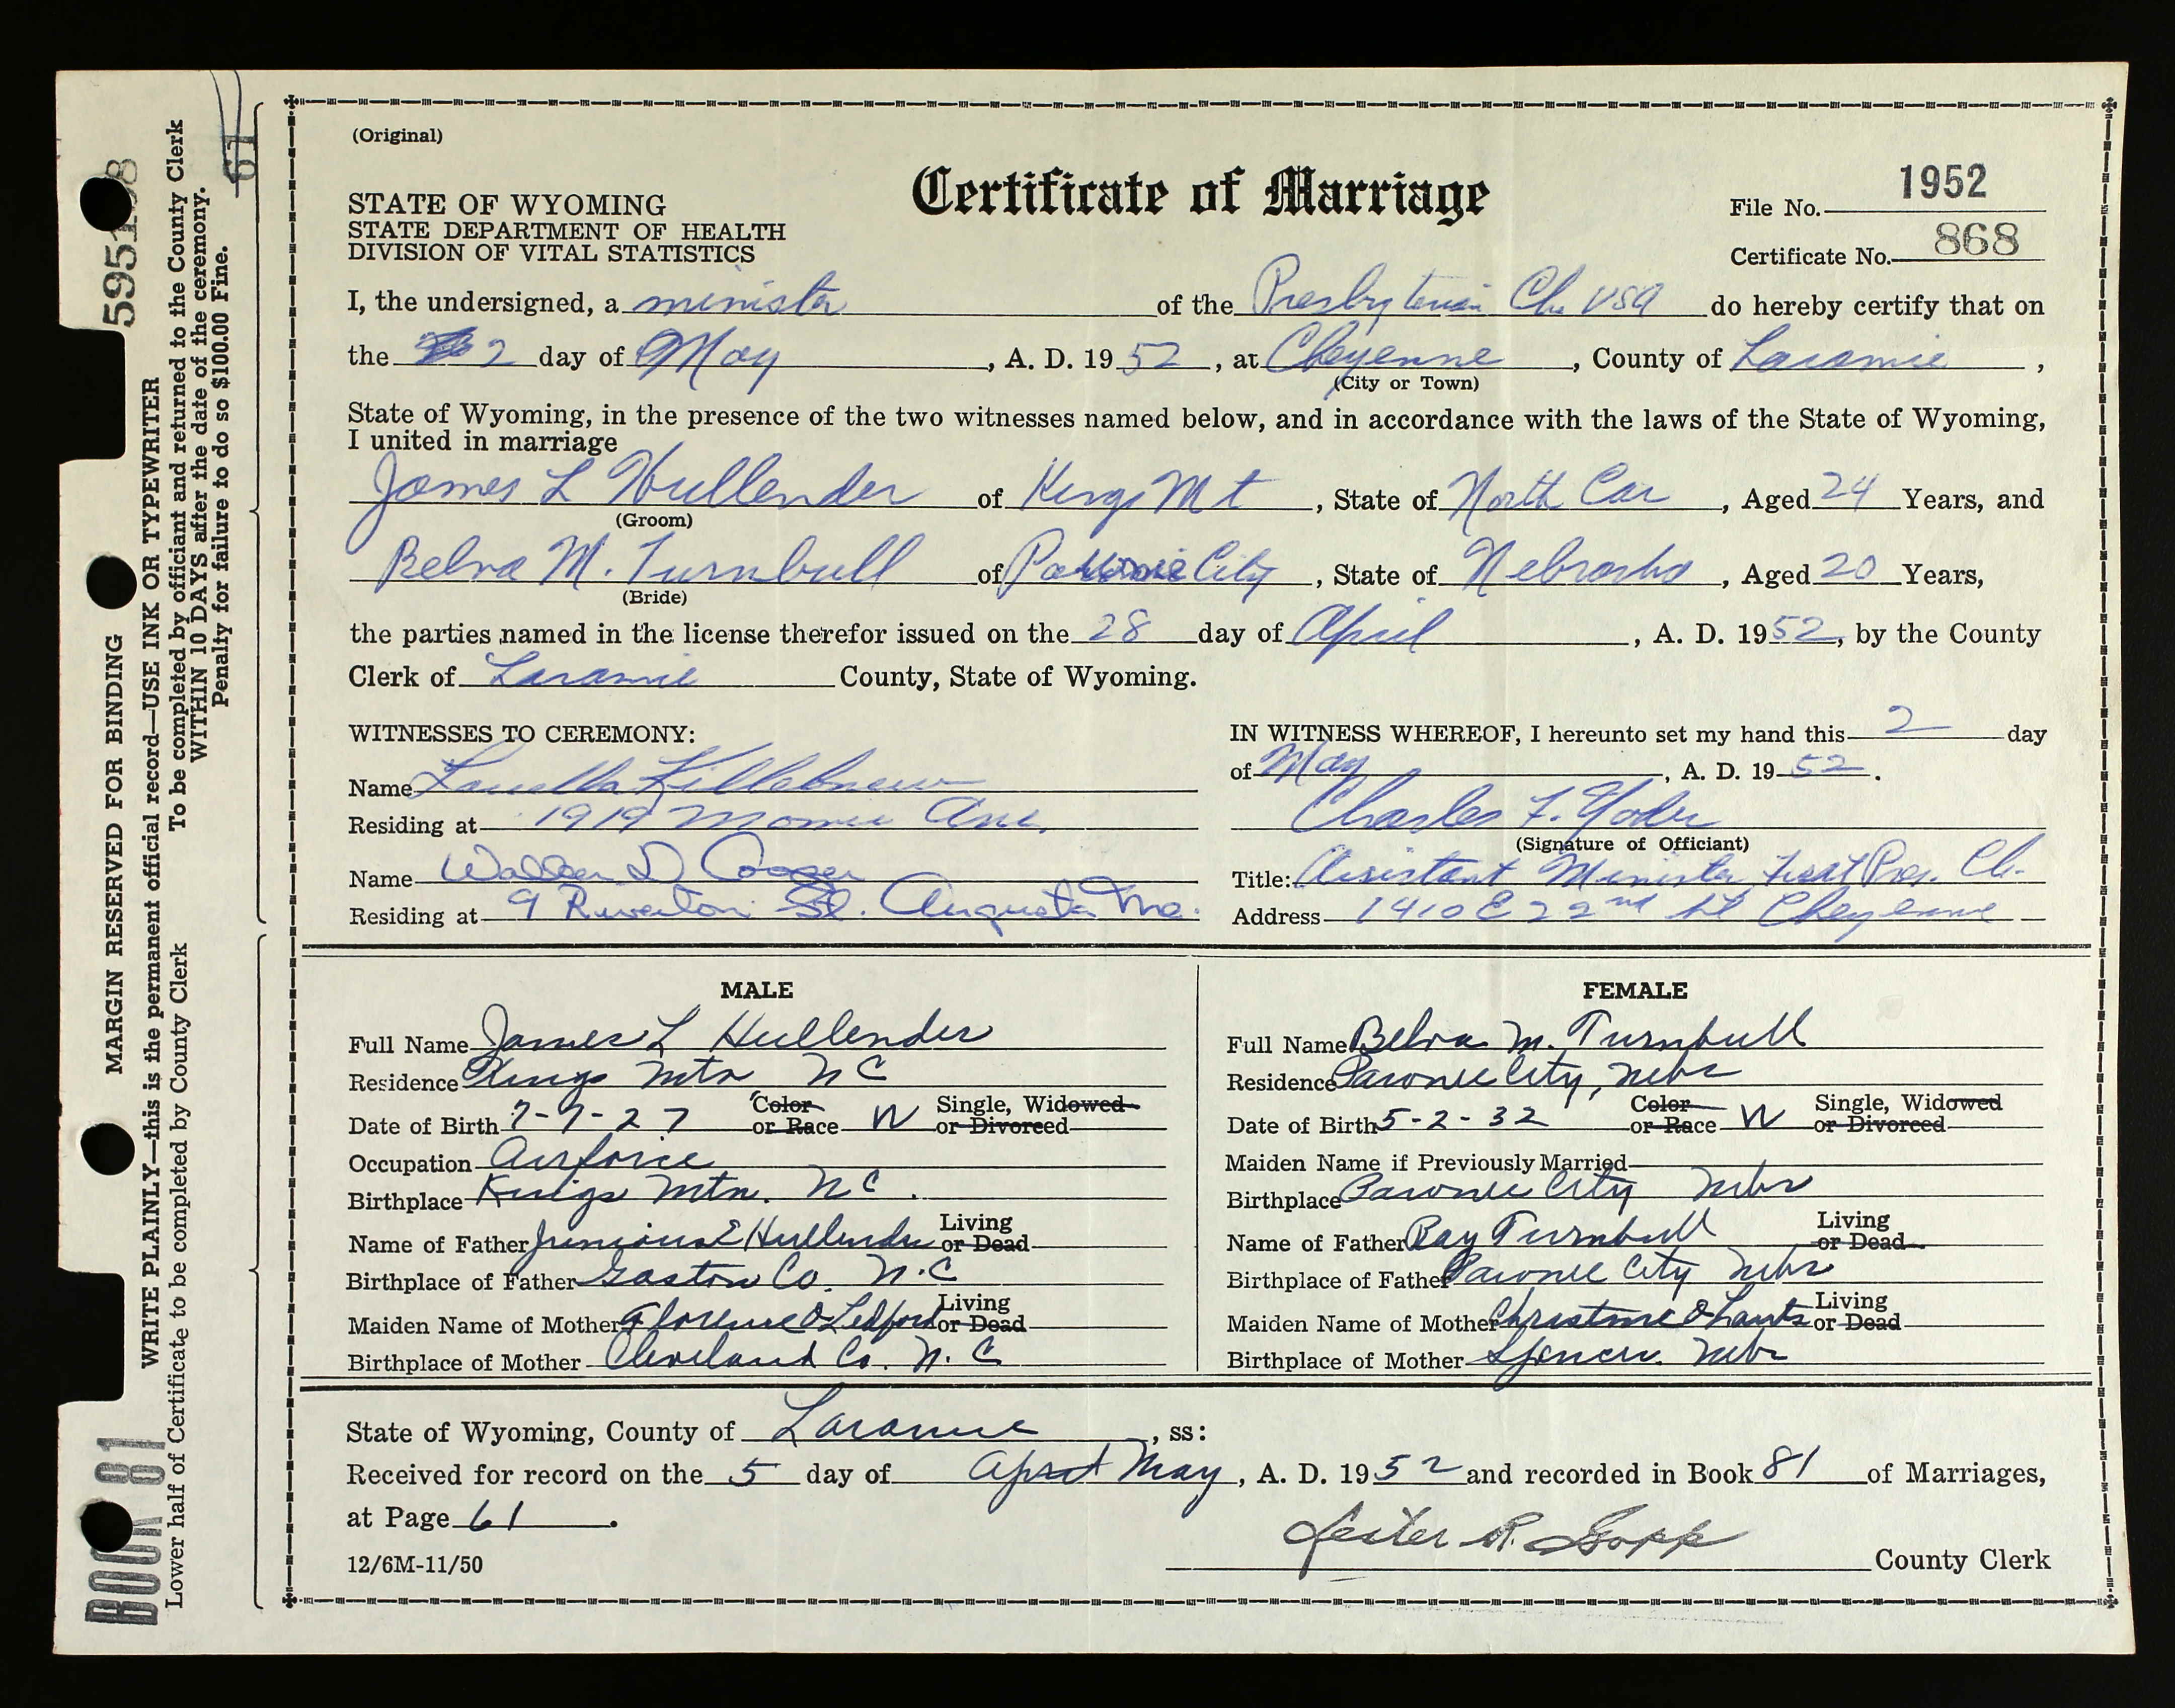 (Original)
STATE OF WYOMING
STATE DEPARTMENT OF HEALTH
DIVISION OF VITAL STATISTICS
Certificate of Marriage
File No. 1952
Certificate No. 868
I, the undersigned, a minister of the Presbyterian Ch. USA do hereby certify that on
the 2 day of May, A. D. 1952, at Cheyenne, County of Laramie,
(City or Town)
State of Wyoming, in the presence of the two witnesses named below, and in accordance with the laws of the State of Wyoming,
I united in marriage
James L Hullender of Kings Mt, State of North Car, Aged 24 Years, and
(Groom)
Belva M. Turnbull of Pawnee City, State of Nebraska, Aged 20 Years,
(Bride)
the parties named in the license therefor issued on the 28 day of April, A. D. 1952, by the County
Clerk of Laramie County, State of Wyoming.
WITNESSES TO CEREMONY:
Name Louella Killebrew
Residing at 1919 Ave.
Name D Cooper
Residing at 9 Riverton St. Augusta Me.
IN WITNESS WHEREOF, I hereunto set my hand this 2 day
of May, A. D. 1952.
Charles F. Yoder
(Signature of Officiant)
Title: Assistant Minister First Pres. Ch.
Address 1410 E 22nd St Cheyenne
MALE
Full Name James L Hullender
Residence Kings Mtn NC
Date of Birth 7-7-27 Color or Race W Single, Widowed or Divorced
Occupation Airforce
Birthplace Kings Mtn. NC.
Name of Father Junious E Hullender Living or Dead
Birthplace of Father Gaston Co. N.C
Maiden Name of Mother Florence O Ledford Living or Dead
Birthplace of Mother Cleveland Co. N.C
FEMALE
Full Name Belva M. Turnbull
Residence Pawnee City, Nebr
Date of Birth 5-2-32 Color or Race W Single, Widowed or Divorced
Maiden Name if Previously Married
Birthplace Pawnee City Nebr
Name of Father Ray Turnbull Living or Dead
Birthplace of Father Pawnee City Nebr
Maiden Name of Mother Christine Living or Dead
Birthplace of Mother Spencer Nebr
State of Wyoming, County of Laramie, ss:
Received for record on the 5 day of April May, A. D. 1952 and recorded in Book 81 of Marriages,
at Page 61.
12/6M-11/50
County Clerk
MARGIN RESERVED FOR BINDING
WRITE PLAINLY—this is the permanent official record—USE INK OR TYPEWRITER
Lower half of Certificate to be completed by County Clerk
To be completed by officiant and returned to the County Clerk
WITHIN 10 DAYS after the date of the ceremony.
Penalty for failure to do so $100.00 Fine.
61
BOOK 81